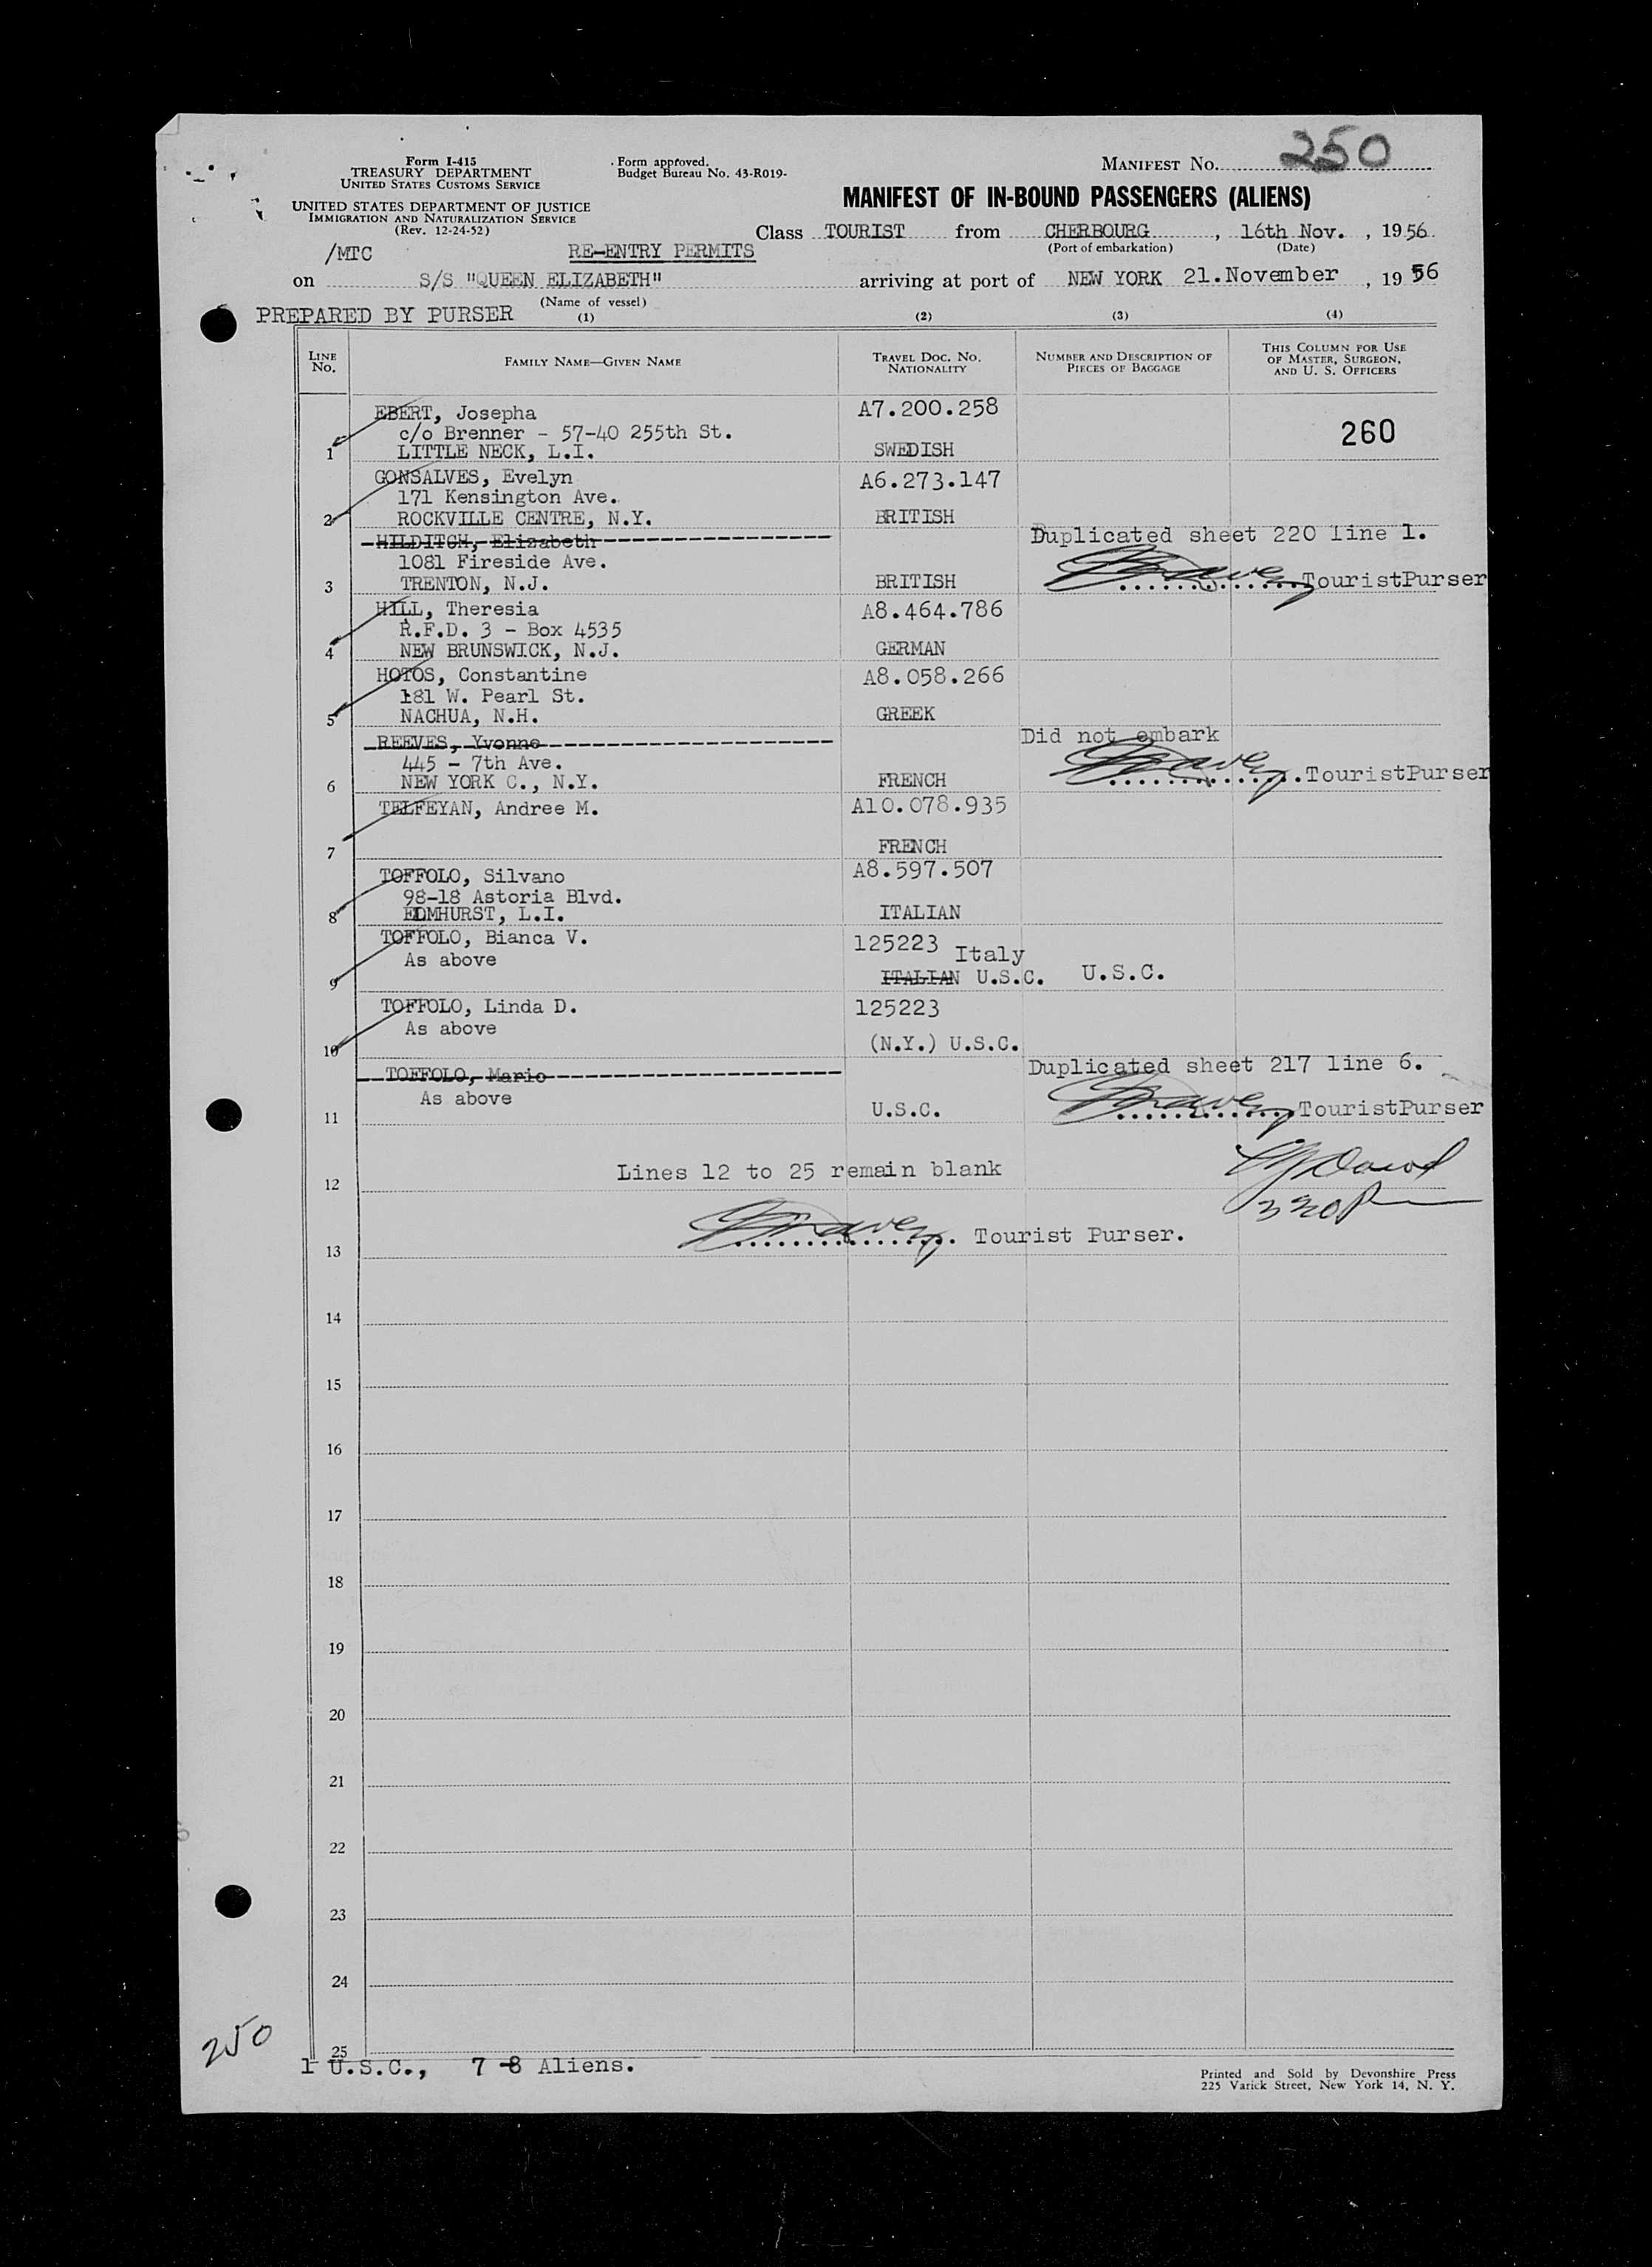 Form I-415
TREASURY DEPARTMENT
UNITED STATES CUSTOMS SERVICE
UNITED STATES DEPARTMENT OF JUSTICE
IMMIGRATION AND NATURALIZATION SERVICE
(Rev. 12-24-52)
Form approved.
Budget Bureau No. 43-R019-
MANIFEST No. 250
MANIFEST OF IN-BOUND PASSENGERS (ALIENS)
Class TOURIST from CHERBOURG, 16th Nov., 1956.
(Port of embarkation) (Date)
/MTC RE-ENTRY PERMITS
on S/S "QUEEN ELIZABETH" arriving at port of NEW YORK 21.November, 1956
(Name of vessel)
PREPARED BY PURSER (1) (2) (3) (4)
LINE No. FAMILY NAME—GIVEN NAME TRAVEL DOC. NO. NATIONALITY NUMBER AND DESCRIPTION OF PIECES OF BAGGAGE THIS COLUMN FOR USE OF MASTER, SURGEON, AND U. S. OFFICERS
EBERT, Josepha A7.200.258
c/o Brenner - 57-40 255th St. 260
1 LITTLE NECK, L.I. SWEDISH
GONSALVES, Evelyn A6.273.147
171 Kensington Ave.
2 ROCKVILLE CENTRE, N.Y. BRITISH
HILDITCH, Elizabeth Duplicated sheet 220 line 1.
1081 Fireside Ave.
3 TRENTON, N.J. BRITISH TouristPurser
HILL, Theresia A8.464.786
R.F.D. 3 - Box 4535
4 NEW BRUNSWICK, N.J. GERMAN
HOTOS, Constantine A8.058.266
181 W. Pearl St.
5 NACHUA, N.H. GREEK
REEVES, Yvonne Did not embark
445 - 7th Ave.
6 NEW YORK C., N.Y. FRENCH TouristPurser
TELFEYAN, Andree M. A10.078.935
7 FRENCH
TOFFOLO, Silvano A8.597.507
98-18 Astoria Blvd.
8 ELMHURST, L.I. ITALIAN
TOFFOLO, Bianca V. 125223 Italy
As above
9 ITALIAN U.S.C. U.S.C.
TOFFOLO, Linda D. 125223
As above
10 (N.Y.) U.S.C.
TOFFOLO, Mario Duplicated sheet 217 line 6.
As above
11 U.S.C. TouristPurser
12 Lines 12 to 25 remain blank
13 Tourist Purser.
14
15
16
17
18
19
20
21
22
23
24
25
250
1 U.S.C., 7 8 Aliens.
Printed and Sold by Devonshire Press
225 Varick Street, New York 14, N. Y.